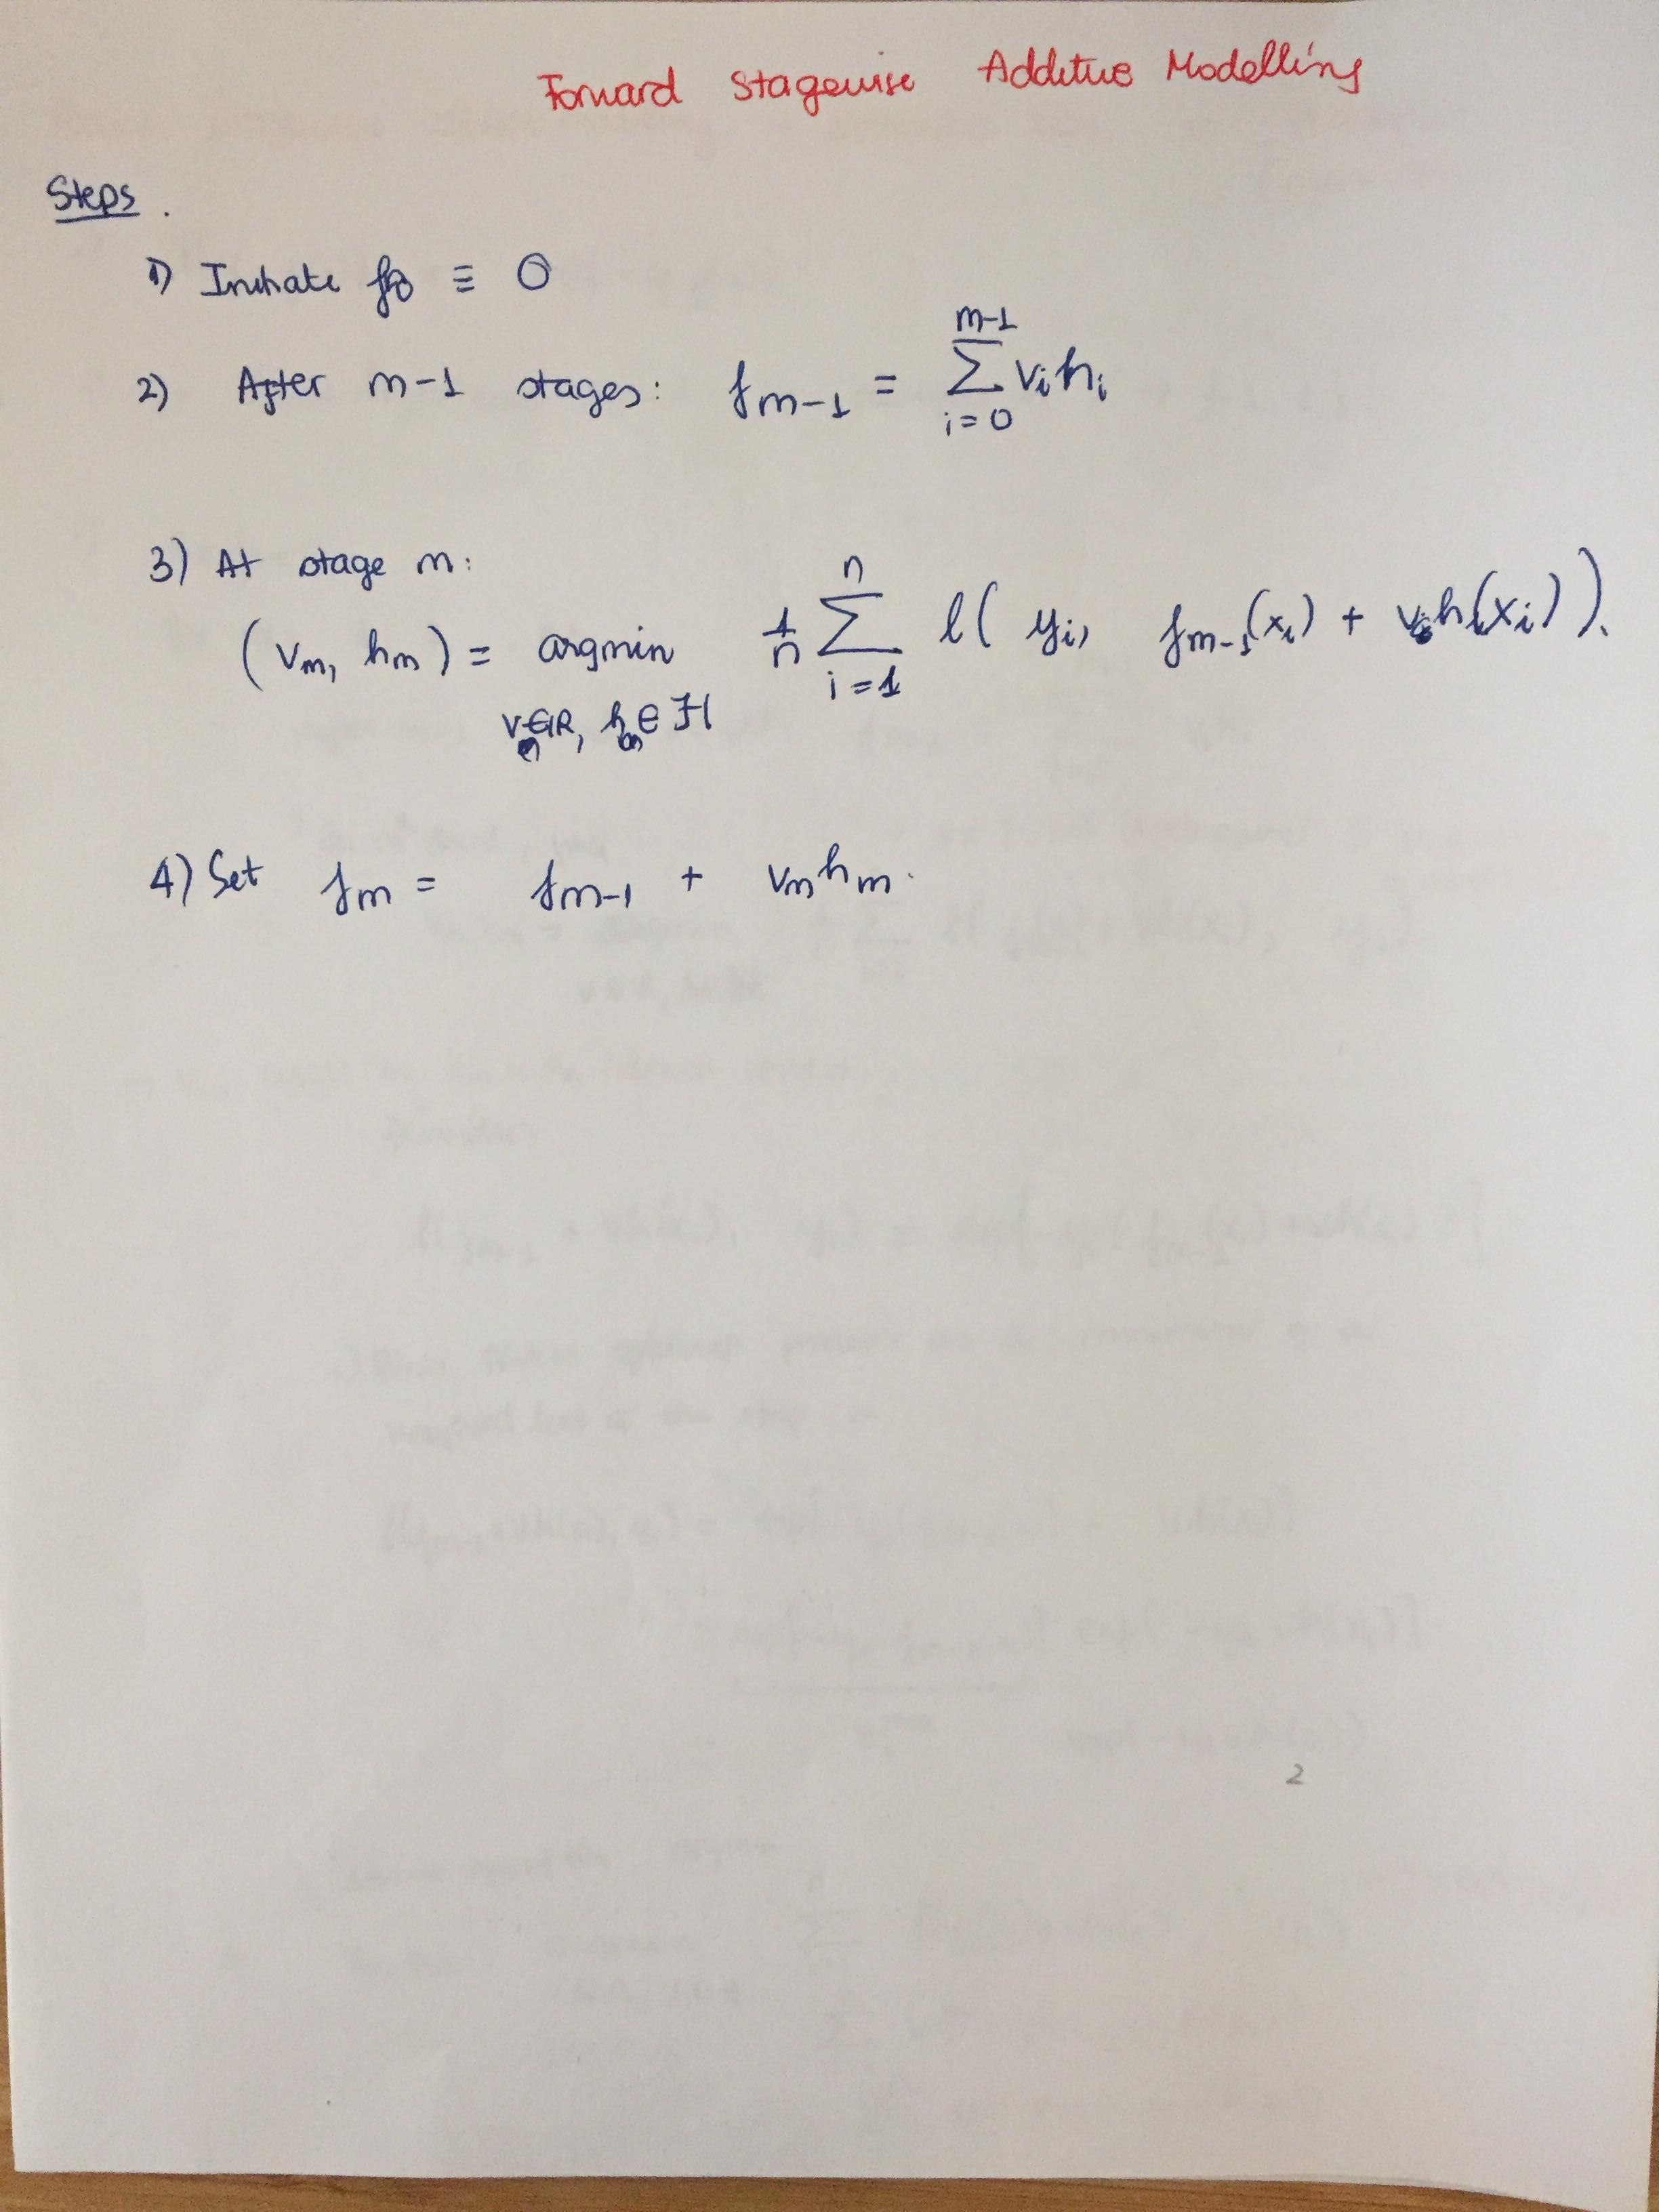 Forward Stagewise Additive Modelling
Steps.
1) Initiate f₀ ≡ 0
2) After m-1 stages: f_{m-1} = \sum_{i=0}^{m-1} v_i h_i
3) At stage m:
(v_m, h_m) = argmin_{v∈ℝ, h∈ℋ} \frac{1}{n} \sum_{i=1}^{n} l(y_i, f_{m-1}(x_i) + v h(x_i)).
4) Set f_m = f_{m-1} + v_m h_m.
2